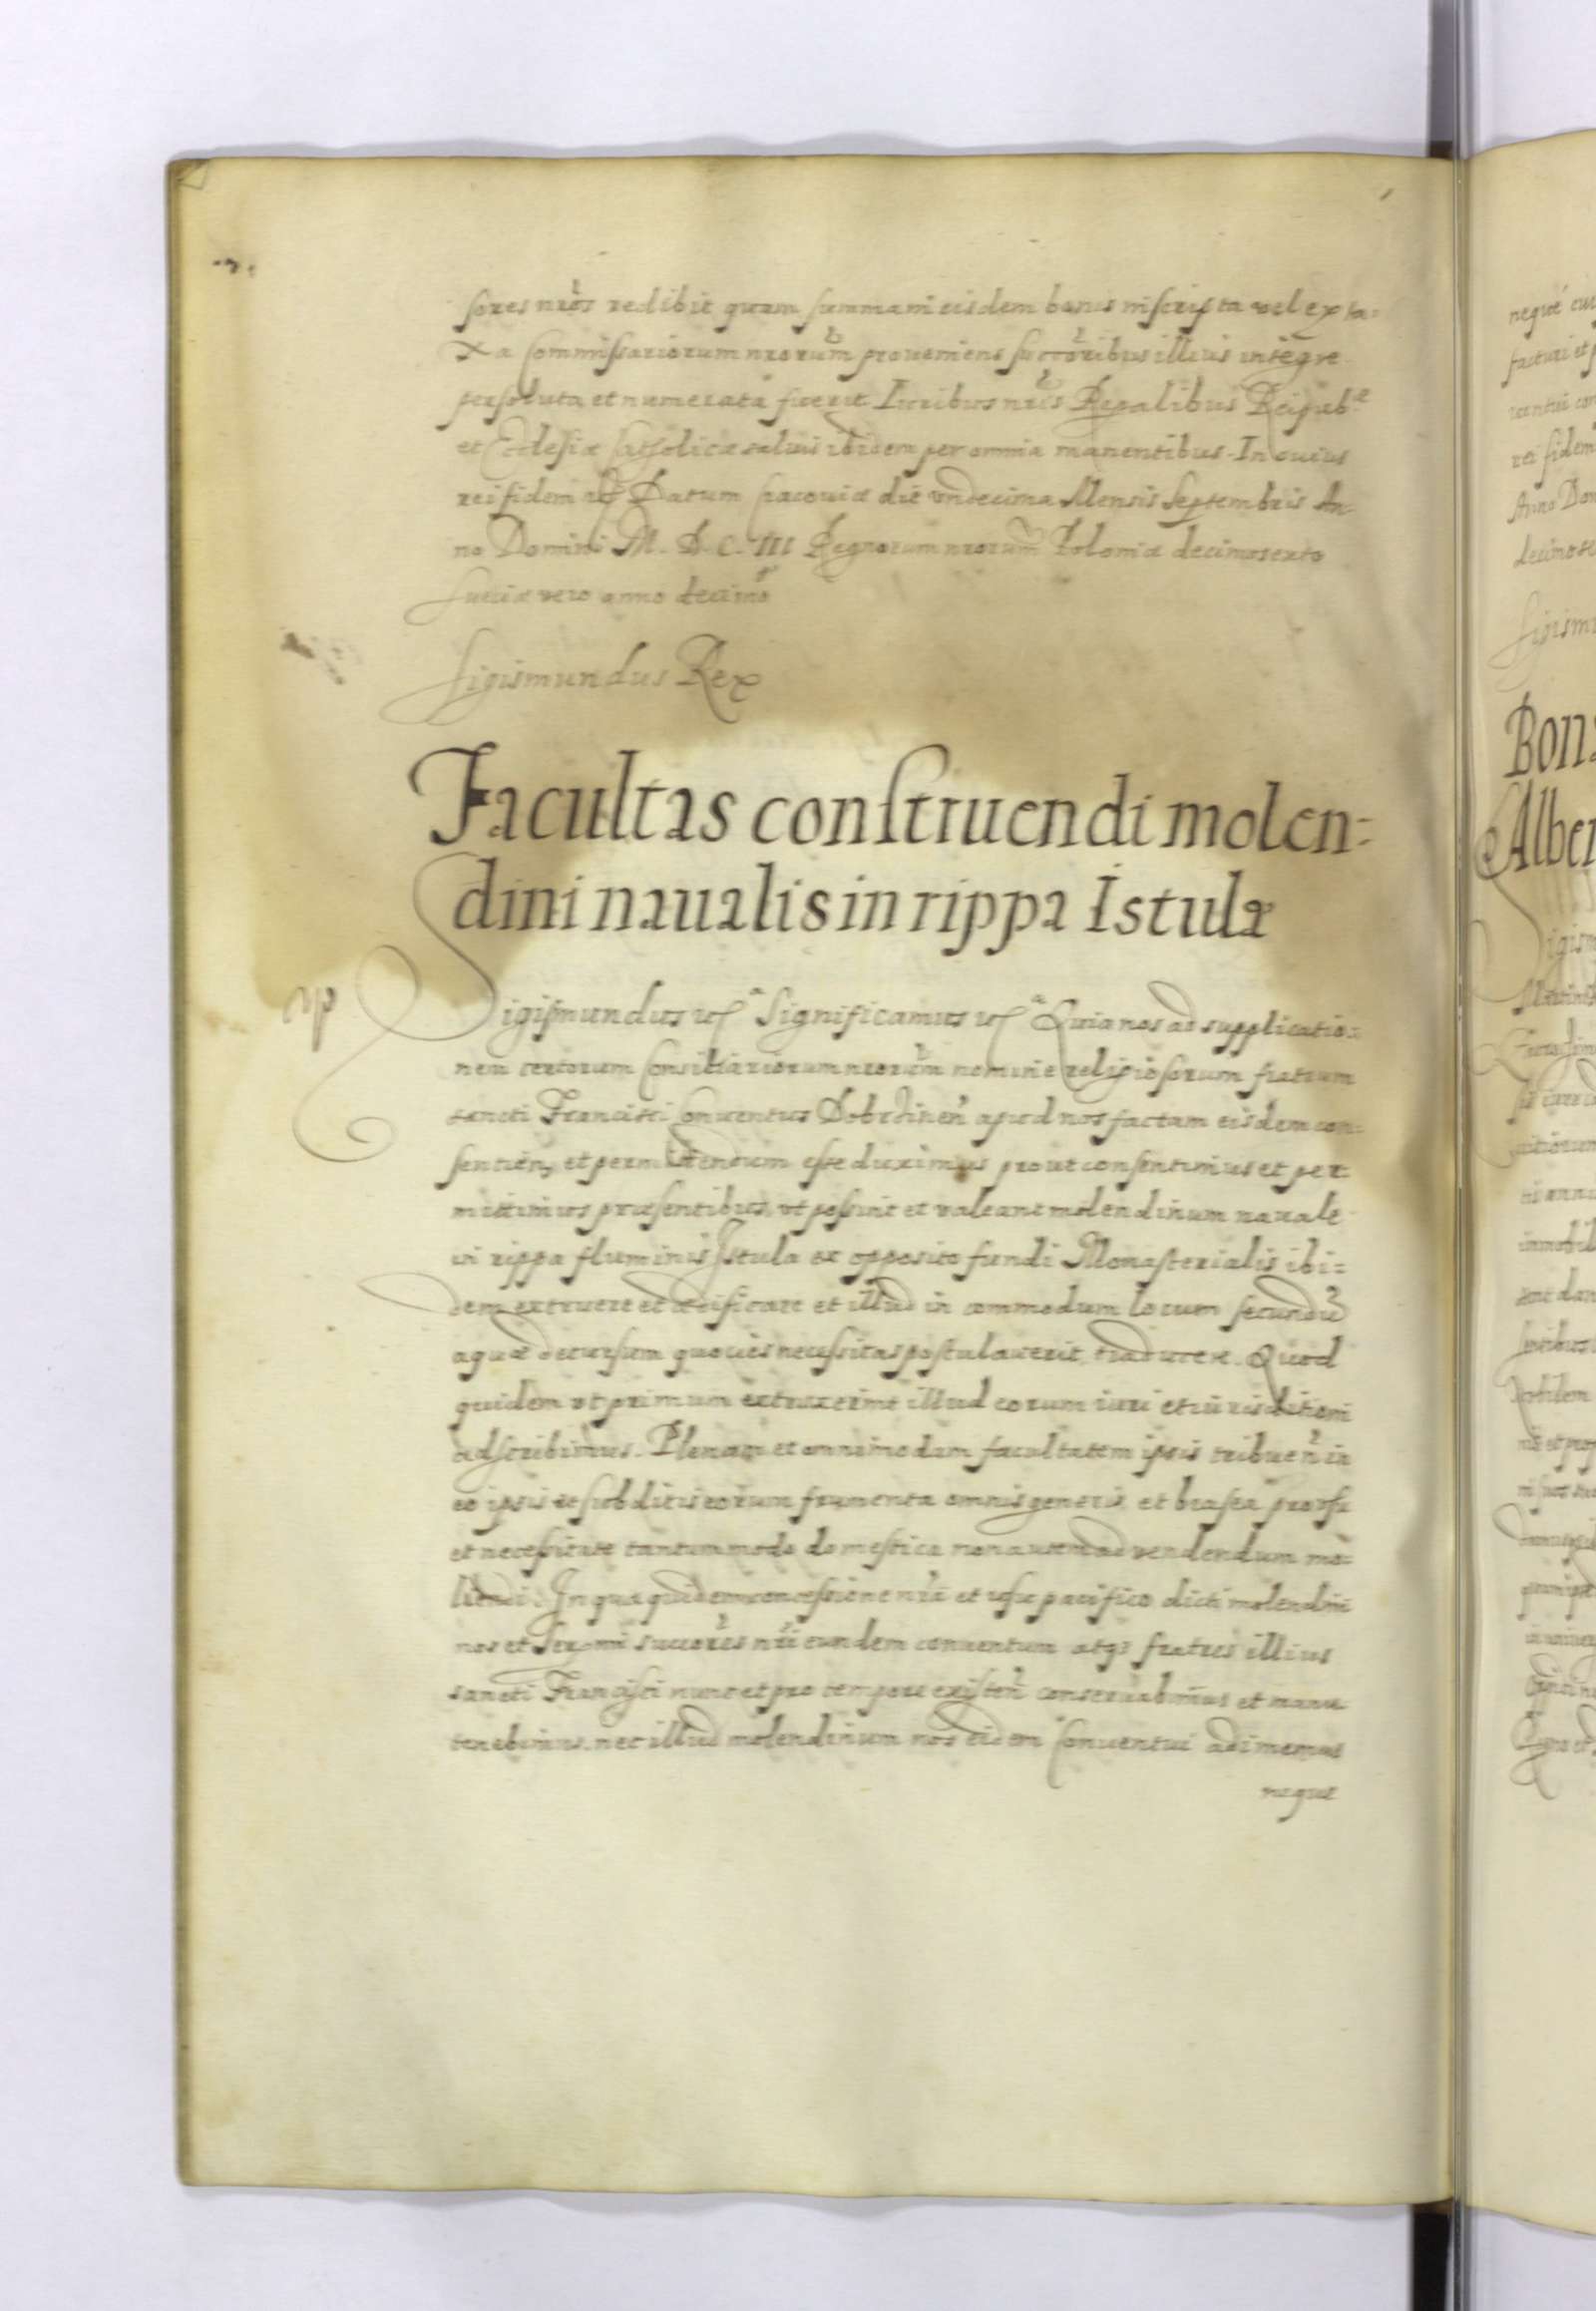 sores nros redibit quam summam eisdem bonis inscripta vel ex ta=
xa Commissariorum nrorum proveniens succoribus illius integre
persoluta et numerata fuerit Iuribus nris Regalibus Reipub.e
et Ecclesiæ Catholicæ salvis ibidem per omnia manentibus. In cuius
rei fidem etc Datum Cracoviæ die undecima Mensis Septembris An-
no Domini M. D. C. III Regnorum nrorum Poloniæ decimosexto
Sueciæ vero anno decimo
Sigismundus Rex
Facultas construendi molen=
dini naualis in rippa Istulæ
Sigismundus etc Significamus etc Quia nos ad supplicatio=
nem certorum Consiliariorum nrorum nomine religiosorum fratrum
sancti Francisci Conuentus Dobrzinen apud nos factam eisdem con=
sentien, et permittendum esse duximus prout consentimus et per=
mittimus præsentibus, vt possint et valeant molendinum nauale
in rippa fluminis Istula ex opposito fundi Monasterialis ibi=
dem extruere et ædificare et illud in commodum locum secundū
aquæ decursum quoties necessitas postulauerit, traducere. Quod
quidem vt primum extruxerint illud eorum iuri et iurisditioni
adscribimus. Plenam et omnimodam facultatem ipsis tribuen in
eo ipsis et subditis eorum frumenta omnis generis, et brasea pro usu
et necessitate tantummodo domestica non autem ad vendendum mo=
liendi. In qua quidem concessione nra et usu pacifico dicti molendini
nos et Sermi succores nri eundem conuentum atq3 fratres illius
sancti Francisci nunc et pro tempore existen conseruabimus et manu
tenebimus. nec illud molendinum nos eidem Conuentui adimemus
neque